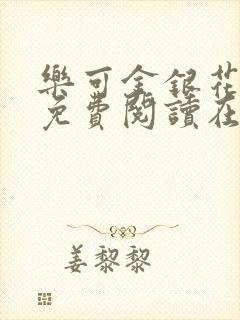 樂可金銀花
免費閱讀在
姜黎黎